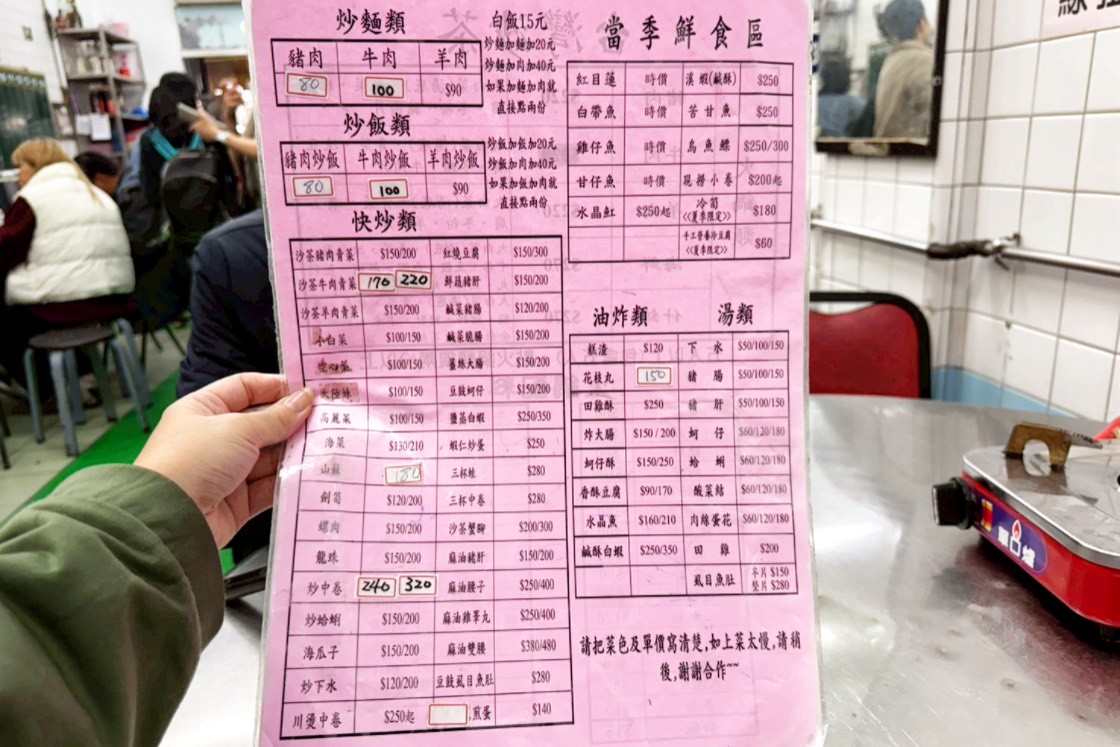 炒麵類
豬肉 牛肉 羊肉
80 100 $90
白飯15元
炒麵加麵加20元
炒麵加肉加40元
如果加麵加肉就
直接點兩份
炒飯類
豬肉炒飯 牛肉炒飯 羊肉炒飯
80 100 $90
炒飯加飯加20元
炒飯加肉加40元
如果加飯加肉就
直接點兩份
快炒類
沙茶豬肉青菜 $150/200 紅燒豆腐 $150/300
沙茶牛肉青菜 170 220 鮮蔬豬肝 $150/200
沙茶羊肉青菜 $150/200 鹹菜豬腸 $120/200
小白菜 $100/150 鹹菜脆腸 $150/200
空心菜 $100/150 薑絲大腸 $150/200
大陸妹 $100/150 豆豉蚵仔 $150/200
高麗菜 $100/150 鹽蒸白蝦 $250/350
海菜 $130/210 蝦仁炒蛋 $250
山蘇 180 三杯蛙 $280
劍筍 $120/200 三杯中卷 $280
螺肉 $150/200 沙茶蟹腳 $200/300
龍珠 $150/200 麻油豬肝 $150/200
炒中卷 240 320 麻油腰子 $250/400
炒蛤蜊 $150/200 麻油雞睪丸 $250/400
海瓜子 $150/200 麻油雙腰 $380/480
炒下水 $120/200 豆豉虱目魚肚 $280
川燙中卷 $250起 ,煎蛋 $140
當季鮮食區
紅目蓮 時價 溪蝦(鹹酥) $250
白帶魚 時價 苦甘魚 $250
雞仔魚 時價 烏魚鰾 $250/300
甘仔魚 時價 現撈小卷 $200起
水晶魟 $250起 冷筍
<<夏季限定>> $180
手工營養冷豆腐
<<夏季限定>> $60
油炸類 湯類
糕渣 $120 下水 $50/100/150
花枝丸 150 豬腸 $50/100/150
田雞酥 $250 豬肝 $50/100/150
炸大腸 $150/200 蚵仔 $60/120/180
蚵仔酥 $150/250 蛤蜊 $60/120/180
香酥豆腐 $90/170 酸菜結 $60/120/180
水晶魚 $160/210 肉絲蛋花 $60/120/180
鹹酥白蝦 $250/350 田雞 $200
虱目魚肚 半片 $150
整片 $280
請把菜色及單價寫清楚,如上菜太慢,請稍
後,謝謝合作~~